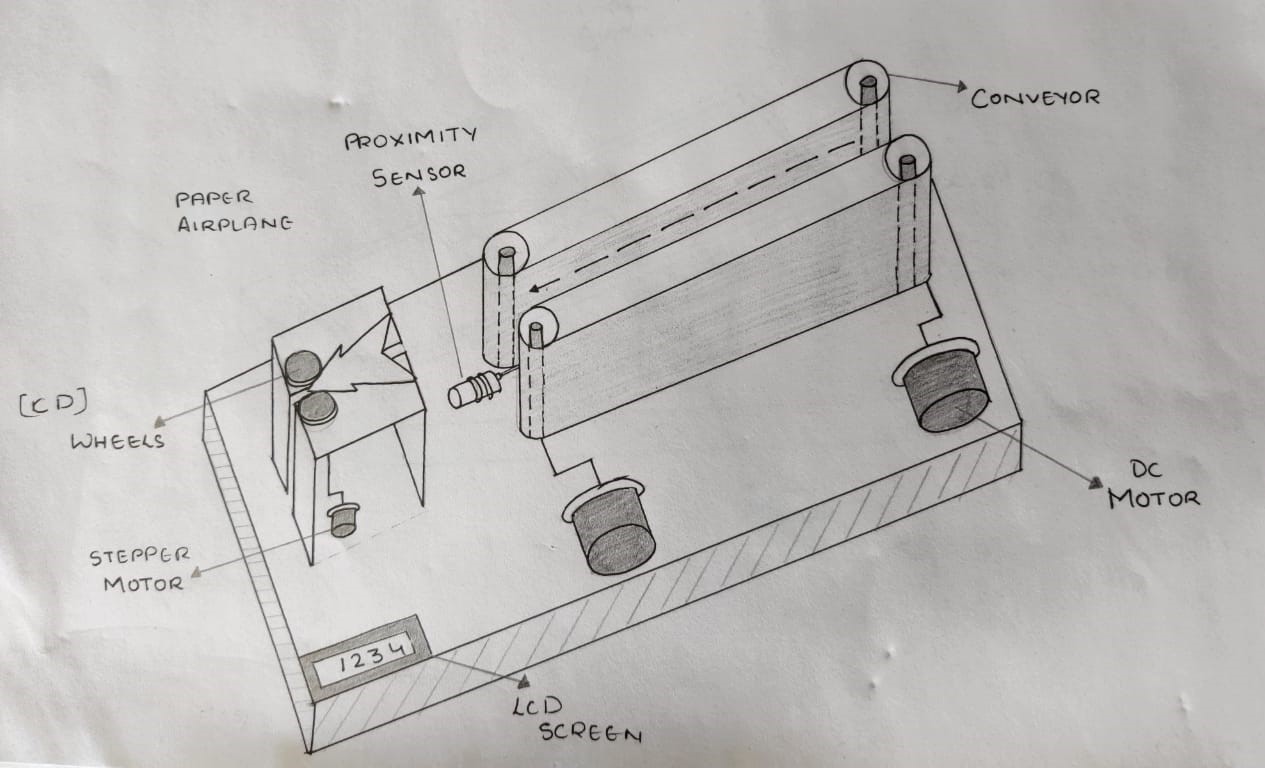 CONVEYOR
PROXIMITY
SENSOR
PAPER
AIRPLANE
[CD]
WHEELS
DC
MOTOR
STEPPER
MOTOR
1234
LCD
SCREEN